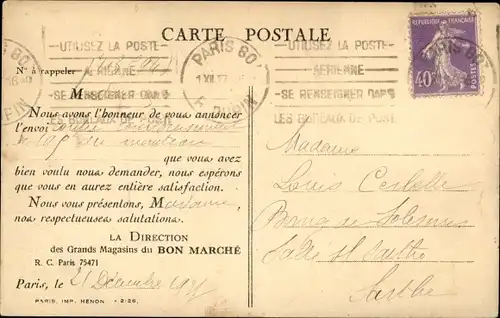 CARTE POSTALE
UTILISEZ LA POSTE
AERIENNE
SE RENSEIGNER DANS
LES BUREAUX DE POSTE
PARIS 80
R. DUPIN
UTILISEZ LA POSTE
AERIENNE
SE RENSEIGNER DANS
LES BUREAUX DE POSTE
PARIS 80
REPUBLIQUE FRANÇAISE
40c
N° à rappeler
M
Nous avons l'honneur de vous annoncer
l'envoi contre remboursement
que vous avez
bien voulu nous demander, nous espérons
que vous en aurez entière satisfaction.
Nous vous présentons, Madame,
nos respectueuses salutations.
LA DIRECTION
des Grands Magasins du BON MARCHÉ
R. C. Paris 75471
Paris, le Décembre
PARIS, IMP. HENON - 2-26.
Madame
Louis
Bourg de Solesmes
Sarthe